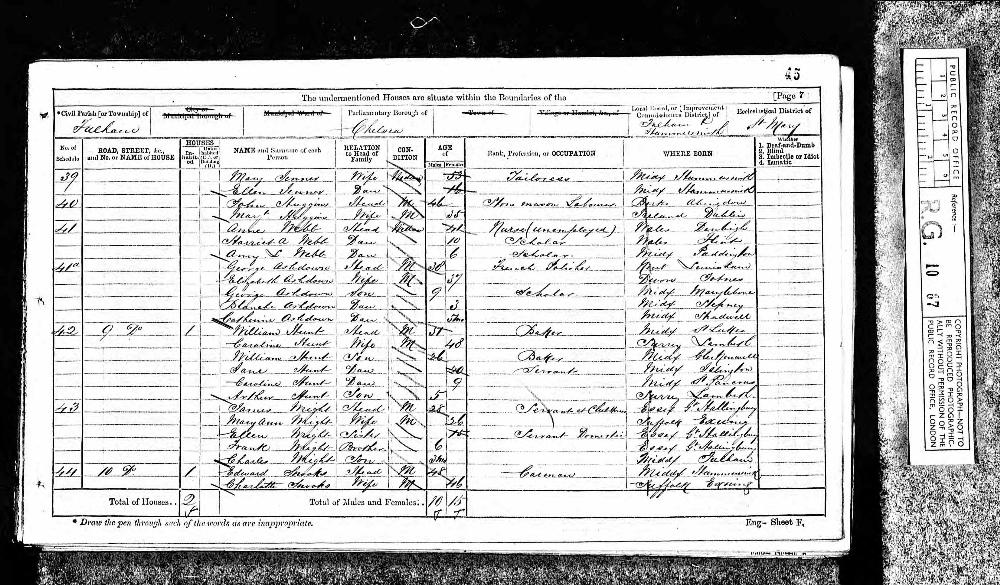 45
The undermentioned Houses are situate within the Boundaries of the [Page 7
*Civil Parish [or Township] of City or Municipal Borough of Municipal Ward of Parliamentary Borough of Town of Village or Hamlet, &c., of Local Board, or [Improvement Commissioners District] of Ecclesiastical District of
Fulham Chelsea Fulham Hammersmith St Mary
No. of Schedule ROAD, STREET, &c., and No. or NAME of HOUSE HOUSES In-habited NAME and Surname of each Person RELATION to Head of Family CON-DITION AGE of Males Females Rank, Profession, or OCCUPATION WHERE BORN Whether 1. Deaf-and-Dumb 2. Blind 3. Imbecile or Idiot 4. Lunatic
39 Mary Jenner Wife 53 Tailoress Midx Hammersmith
Ellen Jenner Dau 16 Midx Hammersmith
40 John Huggins Head M 46 Stone mason Labourer Berks Abingdon
Mary Huggins Wife M 35 Ireland Dublin
41 Anne Webb Head Widow Nurse (unemployed) Wales Denbigh
Harriet A Webb Dau 10 Scholar Wales Flint
Amy L Webb Dau 6 Scholar Midx Paddington
41a George Ashdown Head M 38 French Polisher Kent Lewisham
Elizabeth Ashdown Wife M 37 Devon Totnes
George Ashdown Son 9 Scholar Midx Marylebone
Blanche Ashdown Dau 3 Midx Stepney
Catherine Ashdown Dau Midx Shadwell
42 9 do 1 William Hunt Head M 51 Baker Midx St Lukes
Caroline Hunt Wife M 48 Surrey Lambeth
William Hunt Son 26 Baker Midx Clerkenwell
Jane Hunt Dau 20 Servant Midx Islington
Caroline Hunt Dau 9 Midx St Pancras
Arthur Hunt Son 5 Surrey Lambeth
43 James Wright Head M 28 Servant at Essex Gt Hallingbury
Mary Ann Wright Wife M 26 Suffolk
Ellen Wright Sister 15 Servant Domestic Essex Gt Hallingbury
Frank Wright Brother 6 Essex Gt Hallingbury
Charles Wright Son 3mo Middx Fulham
44 10 do 1 Edward Snooks Head M 48 Carman Middx Hammersmith
Charlotte Snooks Wife M 46 Suffolk
Total of Houses.. 2 Total of Males and Females.. 10 15
* Draw the pen through such of the words as are inappropriate. Eng- Sheet F.
PUBLIC RECORD OFFICE
1 2 3 4 5 6
Reference:-
R.G. 10 67
COPYRIGHT PHOTOGRAPH-NOT TO BE REPRODUCED PHOTOGRAPHICALLY WITHOUT PERMISSION OF THE PUBLIC RECORD OFFICE, LONDON